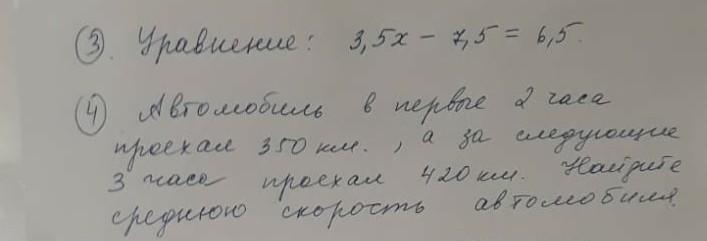 ③. Уравнение: 3,5x - 7,5 = 6,5.
④ Автомобиль в первые 2 часа
проехал 350 км., а за следующие
3 часа проехал 420 км. Найдите
среднюю скорость автомобиля.